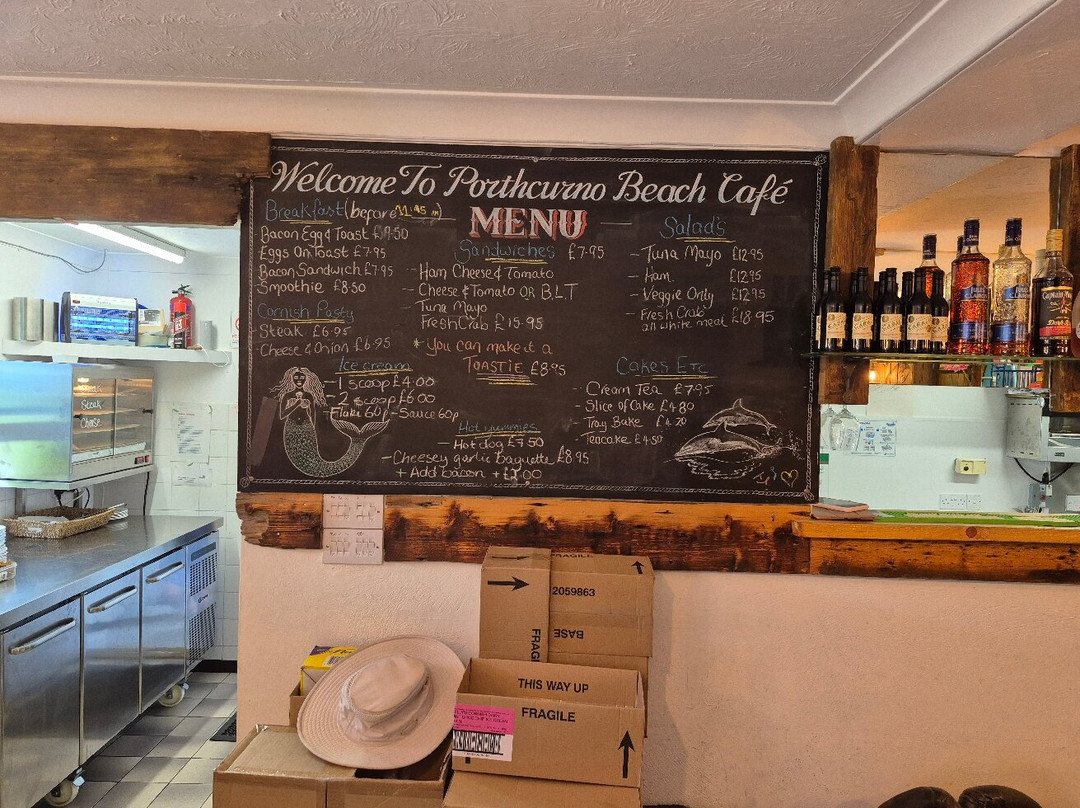 Welcome To Porthcurno Beach Café
MENU
Breakfast (before 11.45am)
Bacon Egg & Toast £9.50
Eggs On Toast £7.95
Bacon Sandwich £7.95
Smoothie £8.50
Cornish Pasty
- Steak £6.95
- Cheese & Onion £6.95
Sandwiches £7.95
- Ham Cheese & Tomato
- Cheese & Tomato OR B.L.T
- Tuna Mayo
- Fresh Crab £15.95
* You can make it a
TOASTIE £8.95
Salads
- Tuna Mayo £12.95
- Ham £12.95
- Veggie Only £12.95
- Fresh Crab £18.95
all white meat
Ice cream
- 1 scoop £4.00
- 2 scoop £6.00
- Flake 60p - Sauce 60p
Hot yummies
- Hot dog £7.50
- Cheesey garlic Baguette £8.95
+ Add bacon + £2.00
Cakes Etc
- Cream Tea £7.95
- Slice of Cake £4.80
- Tray Bake £4.20
- Teacake £4.50
Steak
Cheese
FRAGILE
2059863
BASE
FRAG
THIS WAY UP
FRAGILE